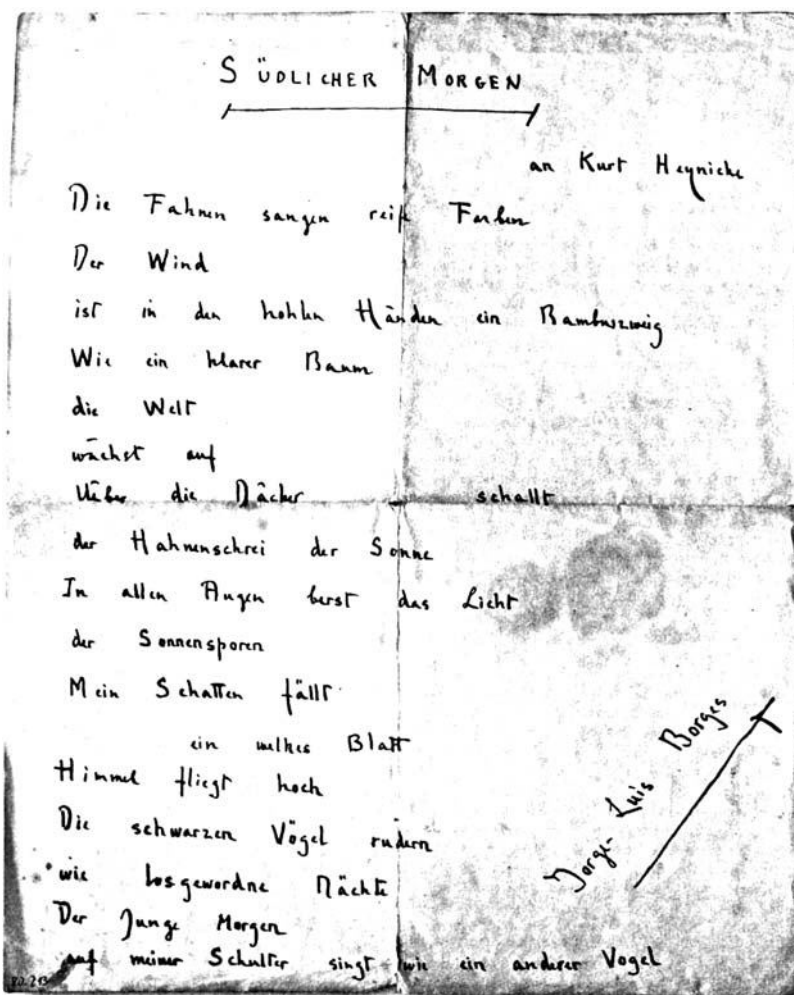 SÜDLICHER MORGEN
an Kurt Heynicke
Die Fahnen sangen reife Farben
Der Wind
ist in den hohlen Händen ein Bambuszweig
Wie ein klarer Baum
die Welt
wächst auf
Ueber die Dächer schallt
der Hahnenschrei der Sonne
In allen Augen berst das Licht
der Sonnensporen
Mein Schatten fällt
ein welkes Blatt
Himmel fliegt hoch
Die schwarzen Vögel rudern
wie losgewordne Nächte
Der Junge Morgen
auf meiner Schulter singt wie ein anderer Vogel
Jorge-Luis Borges